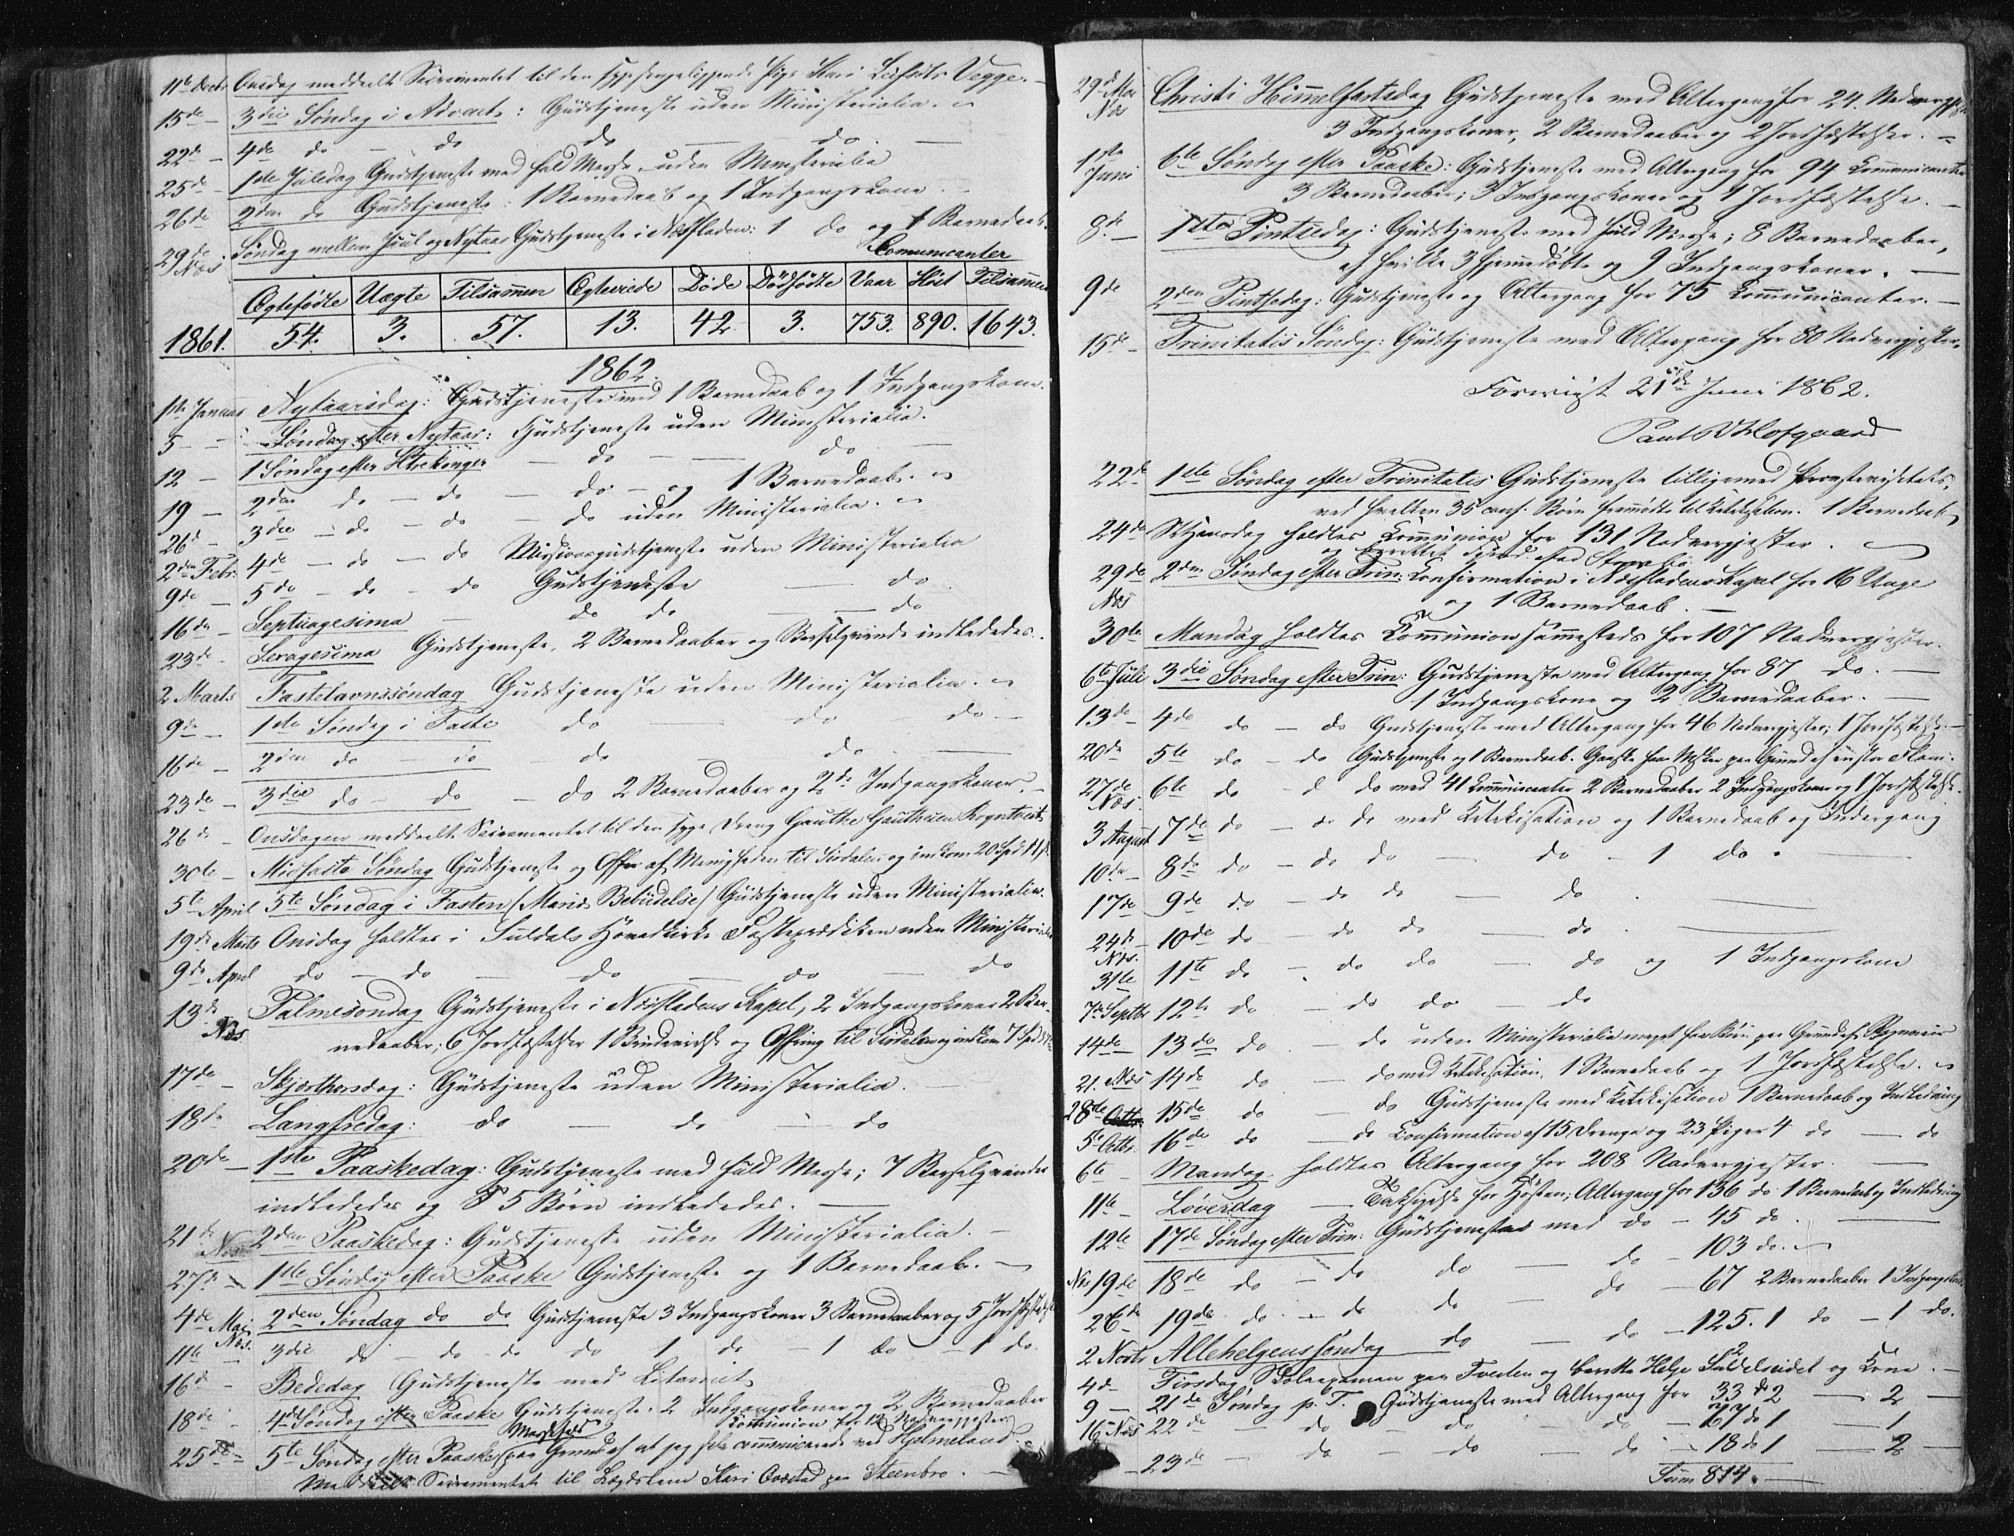 11te Decbr Onsdag meddeelt Sacramentet til den syge sengeliggende Pige Kari Vegge.
15de – 3die Søndag i Advent: Gudstjeneste uden Ministerialia.
22de – 4de do – do do – do. –
25de 1ste Juledag Gudstjeneste med fuld Messe, uden Ministerialia
26de 2den do Gudstjeneste: 1 Barnedaab og 1 Indgangskone.
29de Næs Søndag mellem Juul og Nytaar Gudstjeneste i Næsfladen: 1 do og 1 Barnedaab.
Comunicanter
Ægtefødte Uægte Tilsammen Ægteviede Døde Dødfødte Vaar Høst Tilsammen
1861. 54. 3. 57. 13. 42 3. 753. 890. 1643.
1862.
1ste Januar Nytaarsdag: Gudstjeneste med 1 Barnedaab og 1 Indgangskone.
5 – – Søndag efter Nytaar: Gudstjeneste uden Ministerialia.
12 – 1 Søndag efter Htrekonger – do – do –
19 – 2den do – do – do – og 1 Barnedaab.
26de – 3die – do – do – do uden Ministerialia.
2den Febr. 4de – do – do Missionsgudstjeneste uden Ministerialia
9de – 5te do – do – do Gudstjeneste – do
16de – Septuagesima – do do – do
23de – Sexagesima Gudstjeneste, 2 Barnedaaber og Barselqvinde indlededes.
2 Marts Fastelavnssøndag Gudstjeneste uden Ministerialia.
9de – 1ste Søndag i Faste do – do do. –
16de – 2den do – do do – do. –
23de – 3die do – do – do 2 Barnedaaber og 2de Indgangskoner. –
26de Onsdagen meddeelt Sacramentet til den syge Dreng Gauthe Gauthesen
30te – Midfaste Søndag Gudstjeneste og Offer af Menigheden til Sirdalen og indkom 20 Spd
5te April 5te Søndag i Fasten/Mariæ Bebudelse/Gudstjeneste uden Ministerialia.
19de Marts Onsdag holdtes i Suldals Hovedkirke Fasteprædiken uden Ministerialia
9de April do – do – do – do – do
13de Næs Palmesøndag Gudstjeneste i Næsfladens Kapel, 2 Indgangskoner 2 Bar-
nedaaber; 6 Jordfæstelser 1 Brudevielse og Offring til Sirdalen og indkom 7 Spd
17de – Skjærthorsdag: Gudstjeneste uden Ministerialia. –
18de Langfredag: do – do – do
20de – 1ste Paaskedag: Gudstjeneste med fuld Messe; 7 Barselqvinder
indlededes og 5 Børn indlededes. –
21de Næs 2den Paaskedag: Gudstjeneste uden Ministerialia. –
27de – 1ste Søndag efter Paaske Gudstjeneste og 1 Barnedaab. –
4de Mai Næs. 2den Søndag do do Gudstjeneste 3 Indgangskoner 3 Barnedaaber og 5 Jordfæstelser
11te – 3die do – do – do do 1 do – 1 do – 1 do.
16de – Bededag Gudstjeneste med Litaniet
18de – 4de Søndag efter Paaske Gudstjeneste. 2 Indgangskoner og 2 Barnedaaber
Communion for 12 Nadvergjester
25de – 5te Søndag efter Paaske Messefald paa Grund af at jeg communicerede ved Hjelmeland.
Meddeelt Sacramentet til Lægdslem Kari paa Steenbro. –
29de Mai Næs Christi Himmelfartsdag Gudstjeneste med Altergang for 24 Nadvergjester
3 Indgangskoner, 2 Barnedaaber og 2 Jordfæstelser. –
1ste Juni 6te Søndag efter Paaske: Gudstjeneste med Altergang for 94 Communicanter
3 Barnedaaber; 3 Indgangskoner og 1 Jordfæstelse. –
8de – 1ste Pintsedag: Gudstjeneste med fuld Messe; 8 Barnedaaber,
af hvilke 3 hjemmedøbte og 9 Indgangskoner. –
9de 2den Pintsedag: Gudstjeneste og Altergang for 75 Communicanter. –
15de – Trinitatis Søndag: Gudstjeneste med Altergang for 80 Nadvergjester.
Foreviist 21de Juni 1862.
Paul Hofgaard
22de 1ste Søndag efter Trinitatis Gudstjeneste tilligemed Provstevisitats,
ved hvilken 35 conf. Børn fremmødte til Katekisation. 1 Barnedaab
24de St Hansdag holdtes Communion for 131 Nadvergjester.
29de Næs 2den Søndag efter Trin: Confirmation i Næsfladens Kapel for 16 Unge
og 1 Barnedaab. –
30te Mandag holdtes Communion sammesteds for 107 Nadvergjester.
6te Juli 3die Søndag efter Trin: Gudstjeneste med Altergang for 87 do. –
1 Indgangskone og 2 Barnedaaber. –
13de – 4de do – do Gudstjeneste med Altergang for 46 Nadvergjester; 1 Jordfæstelse –
20de 5te do – do Gudstjeneste og 1 Barnedaab. Ganske faa Msker paa Grund af en stor Flom.
27de Næs. 6te do – d do med 41 Communicanter 2 Barnedaaber 2 Indgangskoner og 1 Jordfæstelse.
3 August 7de do – do do med Katekisation og 1 Barnedaab og Indgang
10de – 8de do – do do – do – 1 do. –
17de 9de do – do do – do . –
24de Næs. 10de do – do do – do . –
31te 11te do – do do – do og 1 Indgangskone
7de Septbr 12te do – do do – do
14de – 13de do – do uden Ministerialia meget faa paa Grund af Regnveir
21. Næs 14de do – do med Katekisation, 1 Barnedaab og 1 Jordfæstelse. –
28de 15de do – do Gudstjeneste med Katekisation 1 Barnedaab og Indledning
5te Octb. 16de do – do Confirmation af 15 Drenge og 23 Piger 4 do – do
6te – Mandag holdtes Altergang for 208 Nadvergjester. –
11te – Løverdag – Taksigelse for Høsten; Altergang for 136 do 1 Barnedaab og Indledning
12te 17de Søndag efter Trin: Gudstjeneste med do – 45 do. –
Næs 19de 18de do – do do – do – 103 do. –
26de 19de do – do do – do – 67 2 Barnedaaber 1 Indgangskone
2 Novbr Allehelgenssøndag do – do – 125. 1 do – 1 do.
4de Tirsdag paa Tveden og Helge Suldelseidet og Kone. –
9 – 21de Søndag p. T. Gudstjeneste med Altergang for 33 do 2 – 2 –
16 Næs 22de – do – do – do – 67 do 1 – 1
– 23de – do – do – do – 18 do 1 – 2
Sum 814. –